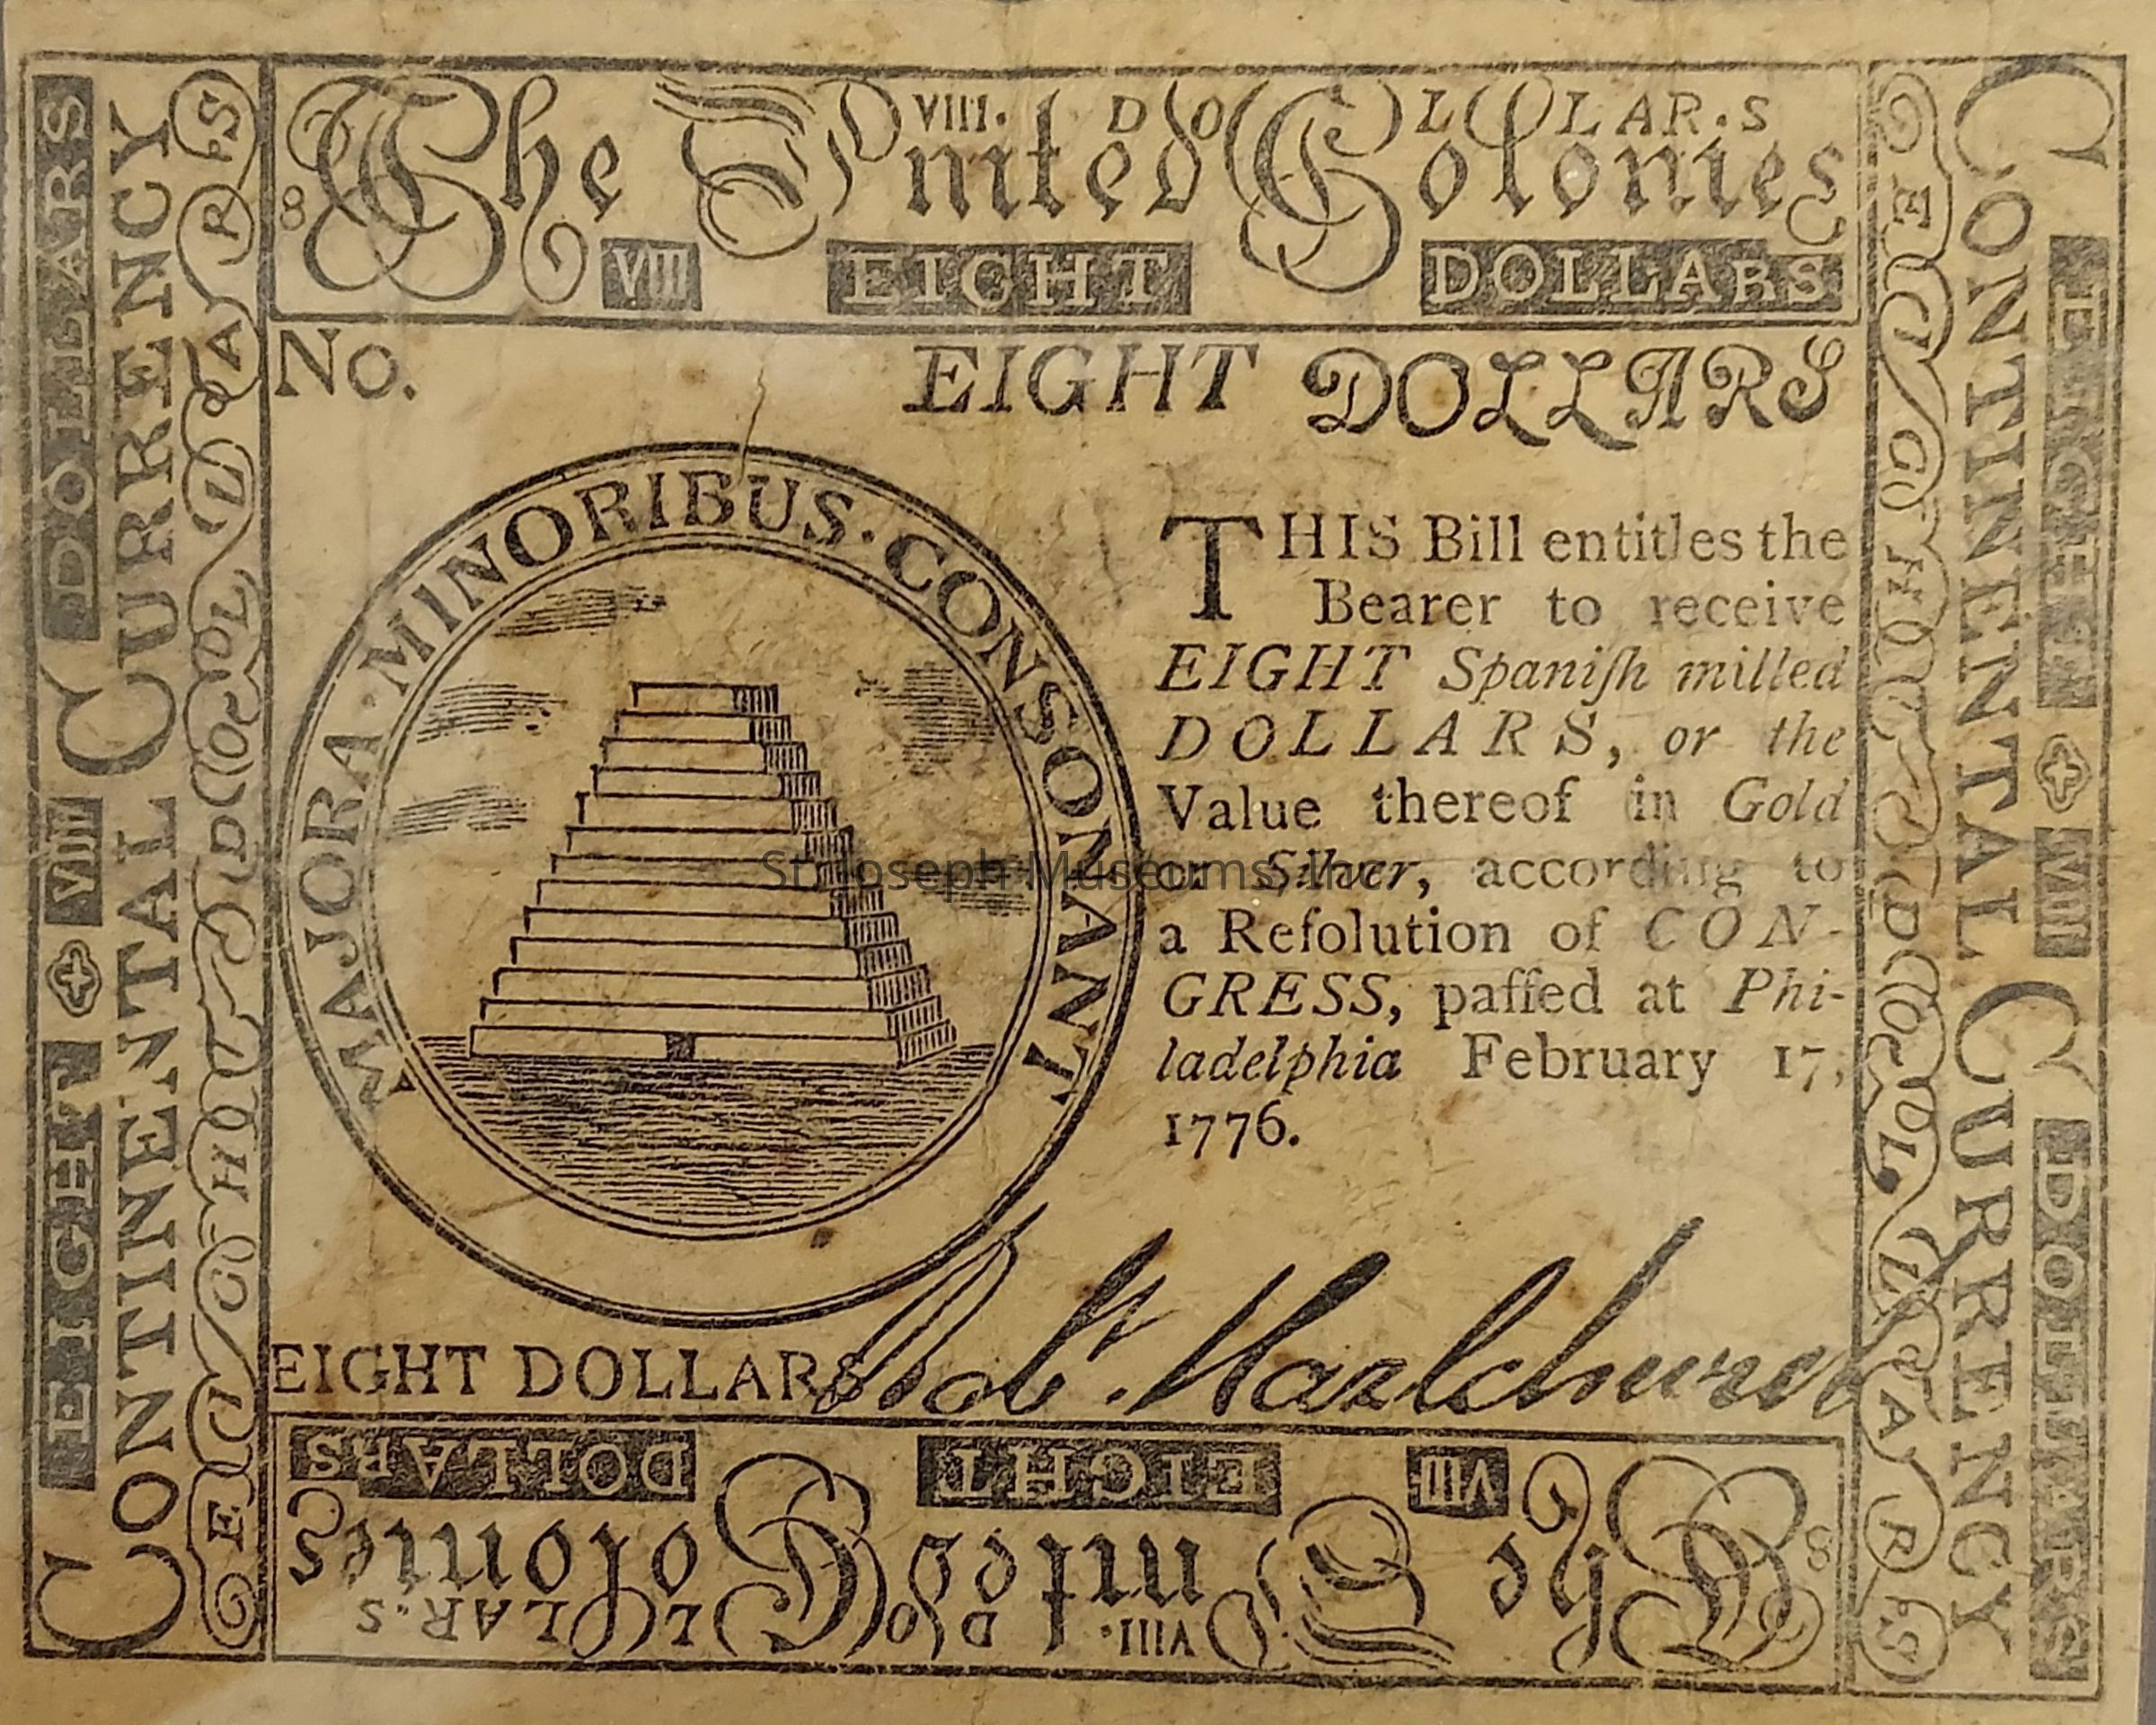 VIII. DOLLAR.S
The United Colonies
8
VIII EIGHT DOLLARS
No. EIGHT DOLLARS
MAJORA · MINORIBUS · CONSONANT
THIS Bill entitles the
Bearer to receive
EIGHT Spaniſh milled
DOLLARS, or the
Value thereof in Gold
or Silver, according to
a Reſolution of CON-
GRESS, paſſed at Phi-
ladelphia February 17,
1776.
EIGHT DOLLARS
Rob
EIGHT VIII DOLLARS
CONTINENTAL CURRENCY
EIGHT DOLLARS
CONTINENTAL CURRENCY
EIGHT VIII DOLLARS
EIGHT DOLLARS
VIII EIGHT DOLLARS
The United Colonies
8
VIII. DOLLAR.S
St. Joseph Museums, Inc.